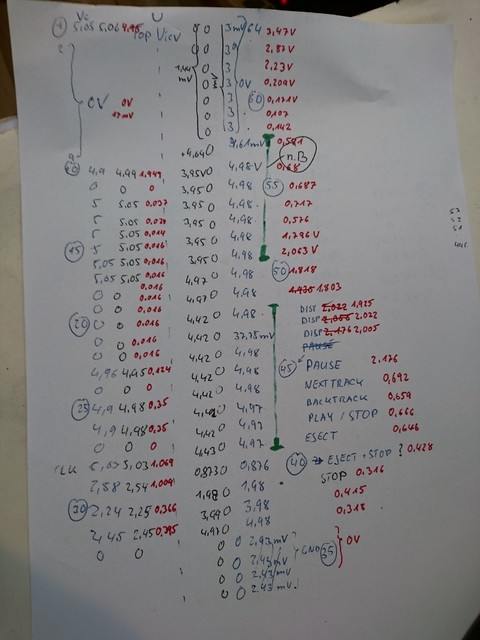 ① Vi U
5,05 5,06 4,95 Top View 0 3mV 64 3,47V
2 0 3 2,87V
0 3 2,23V
mV 0 3 0V 0,209V
0V 0V 0 3 60 0,171V
17mV 0 3 0,107
0 3 0,142
9 +4,64 0 4,61mV 0,581
10 4,9 4,99 1,949 3,95V 0 4,98 V n.B 0,68
0 0 0 3,95 0 4,98 55 0,687
5 5,05 0,037 3,95 0 4,98 0,717
5 5.05 0,020 3,95 0 4,98 0,576
5 5.05 0,014 3,95 0 4,98 1,796 V
15 5 5.05 0,016 3,95 0 4,98 2,063 V
5,05 5,05 0,016 4,97 0 4,98 50 1,818
5,05 5.05 0,016
0 0 0,016 4,97 0 4,98 1,935 1,803
0 0 0,016 4,42 0 4,98 DISP 2,022 1,925
20 0 0 0,016 4,42 0 37,75mV DISP 2,055 2,022
0 0 0,016 4,42 0 4,98 DISP 2,176 2,005
0 0 0,016 PAUSE
4,96 4,95 0,124 4,42 0 4,98 45 PAUSE 2,176
0 0 0 4,42 0 4,98 NEXT TRACK 0,692
25 4,9 4,98 0,35 4,42 0 4,97 BACKTRACK 0,659
4,9 4,98 0,35 4,42 0 4,97 PLAY / STOP 0,666
0 0 0 4,43 0 4,97 EJECT 0,646
CLK 5,05 5,03 1,069 0,873 0 0,876 40 EJECT + STOP ? 0,428
2,58 2,54 1,009 1,98 0 1,98 STOP 0,316
30 2,24 2,25 0,366 3,99 0 3,98 0,415
2,45 2,45 0,395 4,97 0 4,98 0,318
0 0 0 0 2,43mV
0 0 2,43mV GND 35 0V
0 0 2,43mV
0 0 2.43 mV